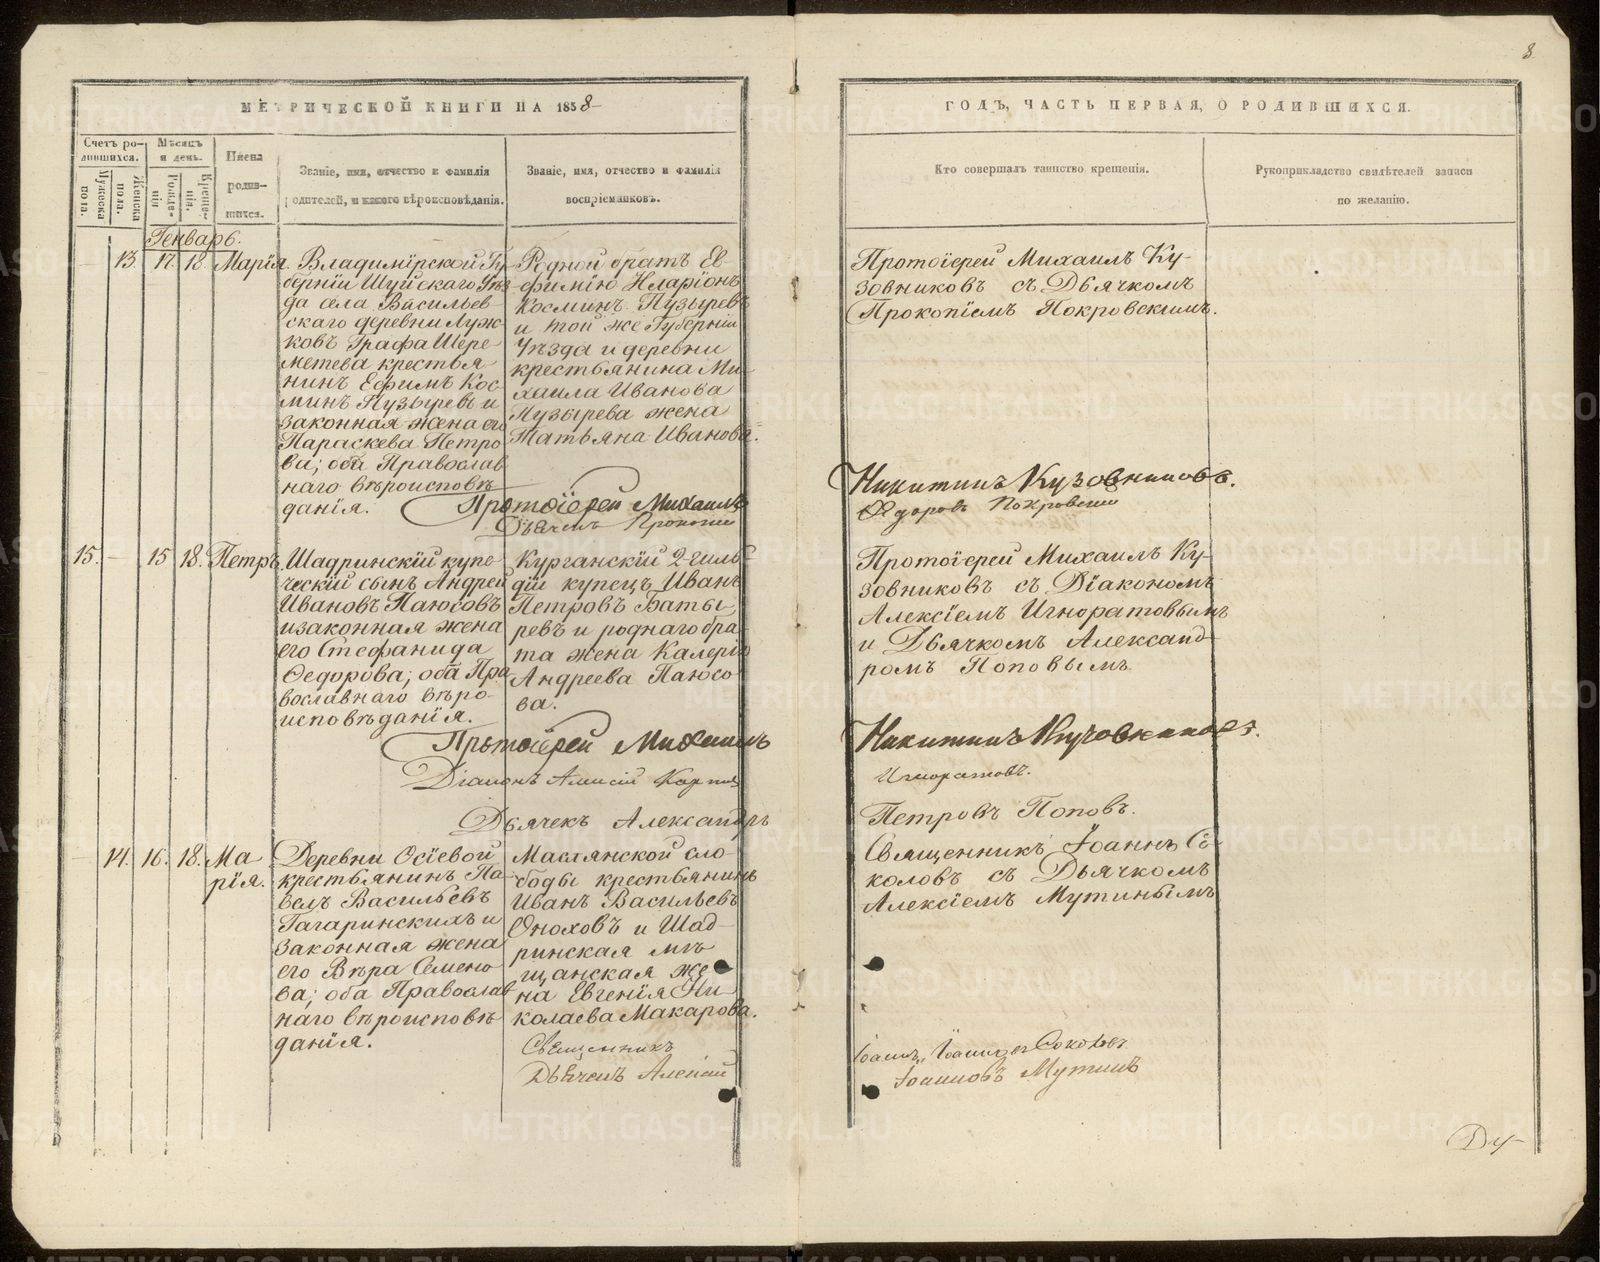 8
МЕТРИЧЕСКОЙ КНИГИ НА 1858
ГОДЪ, ЧАСТЬ ПЕРВАЯ, О РОДИВШИХСЯ.
Счетъ ро-
дившихся.
Мужеска
пола.
Женска
пола.
Мѣсяцъ
и день.
Рожде-
нія
Креще-
нія.
Имена
родив-
шихся.
Званіе, имя, отчество и фамилія
родителей, и какого вѣроисповѣданія.
Званіе, имя, отчество и фамилія
воспріемниковъ.
Кто совершалъ таинство крещенія.
Рукоприкладство свидѣтелей записи
по желанію.
Генварь.
13. 17. 18. Марія.
Владимірской Гу-
берніи Шуйскаго Уѣз-
да села Васильев-
скаго деревни Луж-
ковъ Графа Шере-
метева крестья-
нинъ Ефимъ Кос-
минъ Пузыревъ и
законная жена его
Параскева Петро-
ва; оба Православ-
наго вѣроисповѣ-
данія.
Родной братъ Ев-
фимію Иларіонъ
Косминъ Пузыревъ
и той же Губерніи
Уѣзда и деревни
крестьянина Ми-
хаила Иванова
Пузырева жена
Татьяна Иванова.
Протоіерей Михаилъ Ку-
зовниковъ съ Дьячкомъ
Прокопіемъ Покровскимъ.
Протоіерей Михаилъ
Никитинъ Кузовниковъ.
Дьячекъ Прокопій
Ѳедоровъ Покровскій
15. 15 18. Петръ
Шадринскій купе-
ческій сынъ Андрей
Ивановъ Паюсовъ
и законная жена
его Стефанида
Ѳедорова; оба Пра-
вославнаго вѣро-
исповѣданія.
Курганскій 2-гиль-
діи купецъ Иванъ
Петровъ Баты-
ревъ и роднаго бра-
та жена Калерія
Андреева Паюсо-
ва.
Протоіерей Михаилъ Ку-
зовниковъ съ Діакономъ
Алексіемъ Игноратовымъ
и Дьячкомъ Александ-
ромъ Поповымъ.
Протоіерей Михаилъ
Никитинъ Кузовниковъ.
Діаконъ Алексій
Игноратовъ.
Дьячекъ Александръ
Петровъ Поповъ.
14. 16. 18. Ма-
рія.
Деревни Осіевой
крестьянинъ Па-
велъ Васильевъ
Гагаринскихъ и
законная жена
его Вѣра Семено-
ва; оба Православ-
наго вѣроисповѣ-
данія.
Маслянской сло-
боды крестьянинъ
Иванъ Васильевъ
Онохоⱃъ и Шад-
ринская мѣ-
щанская же-
на Евгенія Ни-
колаева Макарова.
Священникъ Іоаннъ Со-
коловъ съ Дьячкомъ
Алексіемъ Мутинымъ
Священникъ
Іоаннъ Іоанновъ Соколовъ
Дьячекъ Алексій
Іоанновъ Мутинъ
Ду-
METRIKI.GASO-URAL.RU